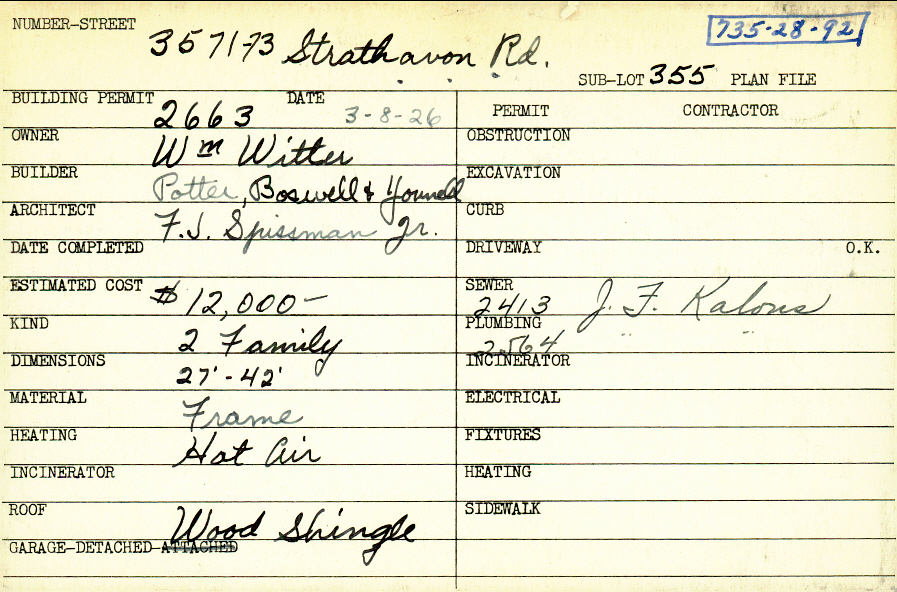 NUMBER-STREET 3571-73 Strathavon Rd. 735-28-92
SUB-LOT 355 PLAN FILE
BUILDING PERMIT 2663 DATE 3-8-26
OWNER Wm Witter
BUILDER Potter, Boswell & Younell
ARCHITECT F.J. Spissman Jr.
DATE COMPLETED
ESTIMATED COST $12,000-
KIND 2 Family
DIMENSIONS 27'-42'
MATERIAL Frame
HEATING Hot Air
INCINERATOR
ROOF Wood Shingle
GARAGE-DETACHED-ATTACHED
PERMIT CONTRACTOR
OBSTRUCTION
EXCAVATION
CURB
DRIVEWAY O.K.
SEWER 2413 J. F. Kalous
PLUMBING 2564 " "
INCINERATOR
ELECTRICAL
FIXTURES
HEATING
SIDEWALK